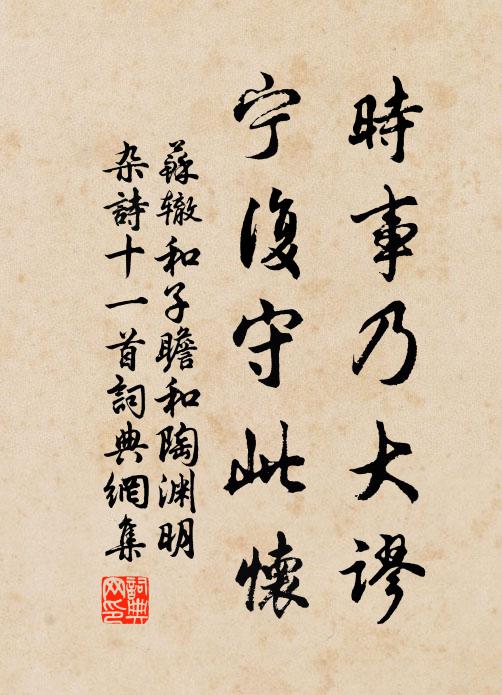 時事乃大謬
宁復守此懷
蘇辙和子瞻和陶渊明
杂詩十一首詞典網集
詞典网印